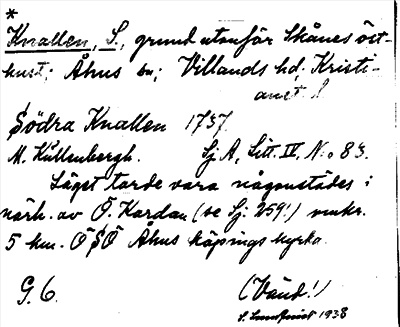 *
Knallen, S., grund utanför Skånes öst-
kust; Åhus sn; Villands hd; Kristi-
anst. l.
Södra Knallen 1737.
M. Kullenbergh. Sj.A, Litt. IV, No 83.
Läget torde vara någonstädes i
närh. av Ö. Kardan (se Sj. 259!) omkr.
5 km. ÖSÖ Åhus köpings kyrka.
G. 6. (Vänd!)
S. Lundquist 1938